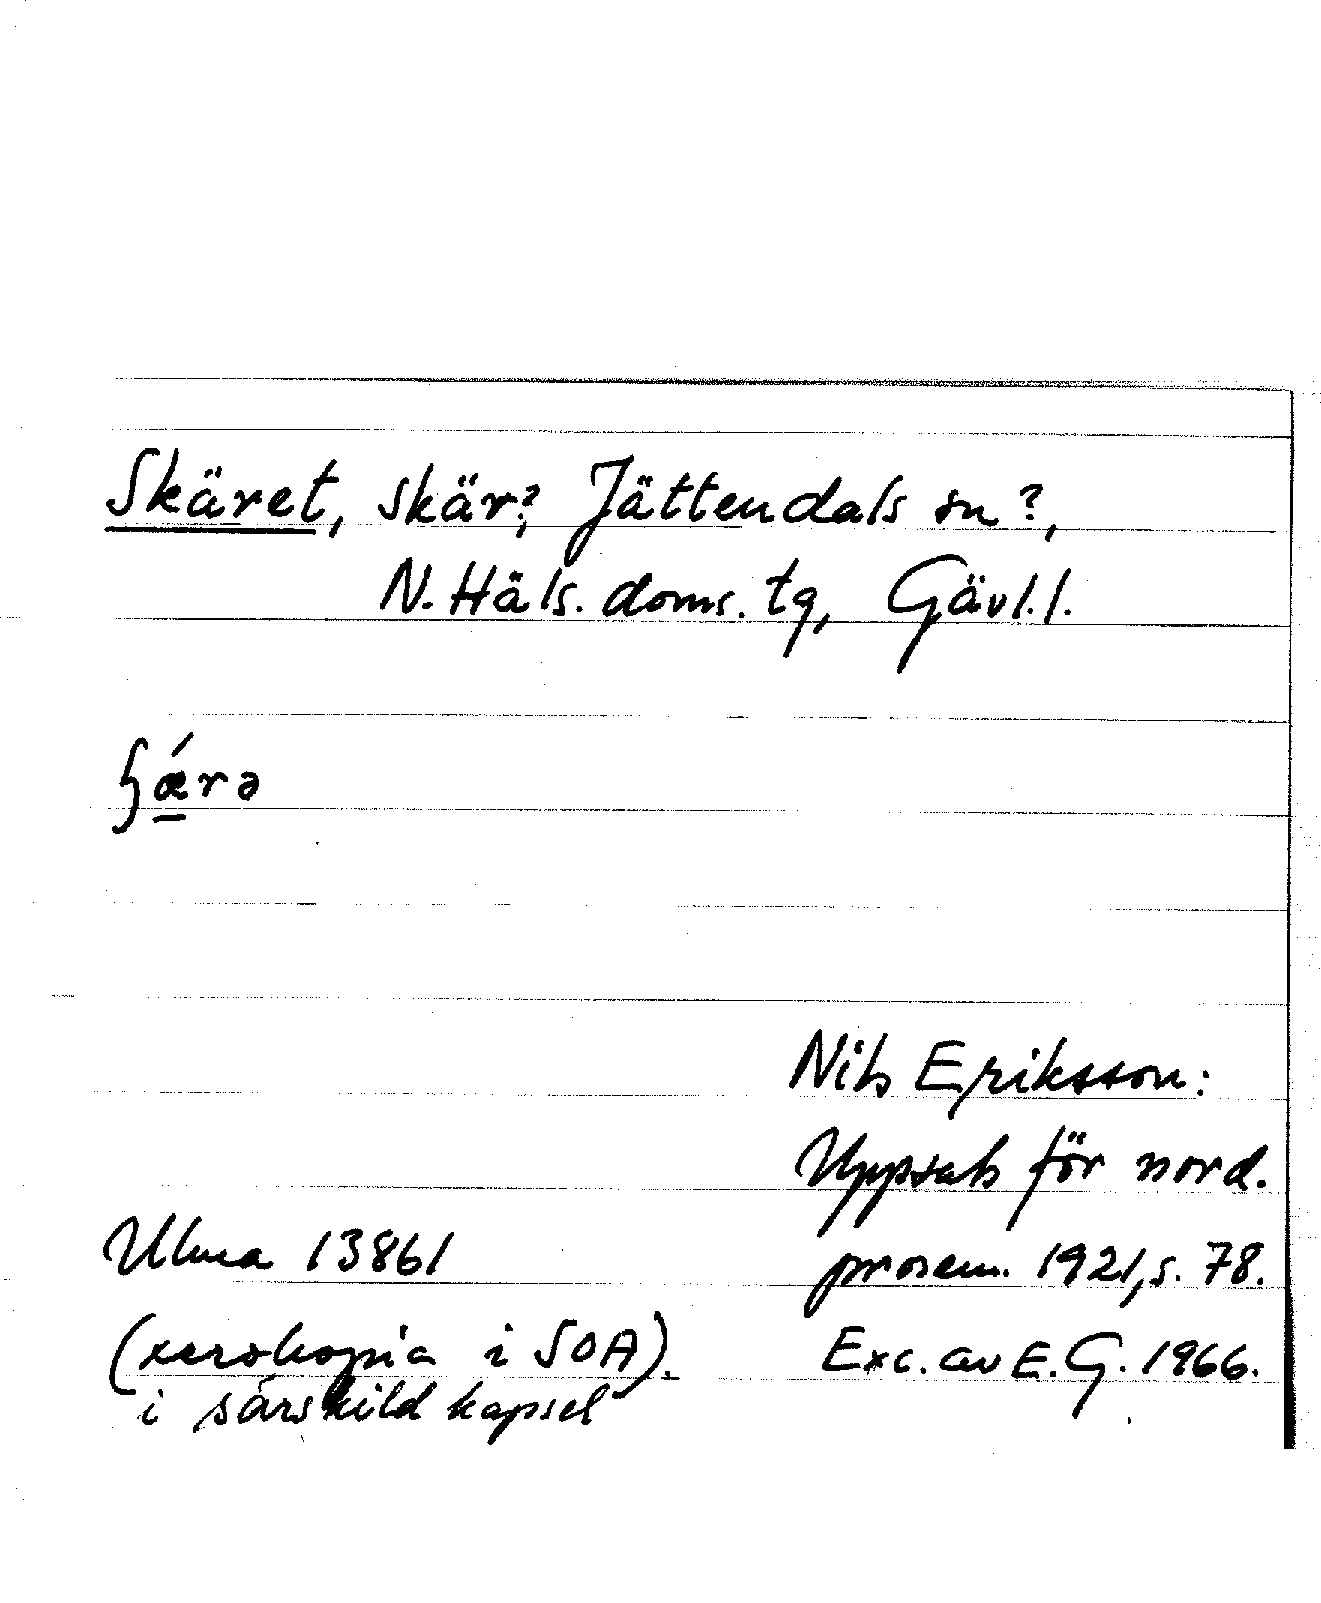 Skäret, skär?, Jättendals sn?,
N. Häls. doms. tg, Gävl. l.
ʂǽ̱rə
Nils Eriksson:
Uppsats för nord.
prosem. 1921, s. 78.
Exc. av E. G. 1966.
Ulma 13861
(xerokopia i SOA).
i särskild kapsel